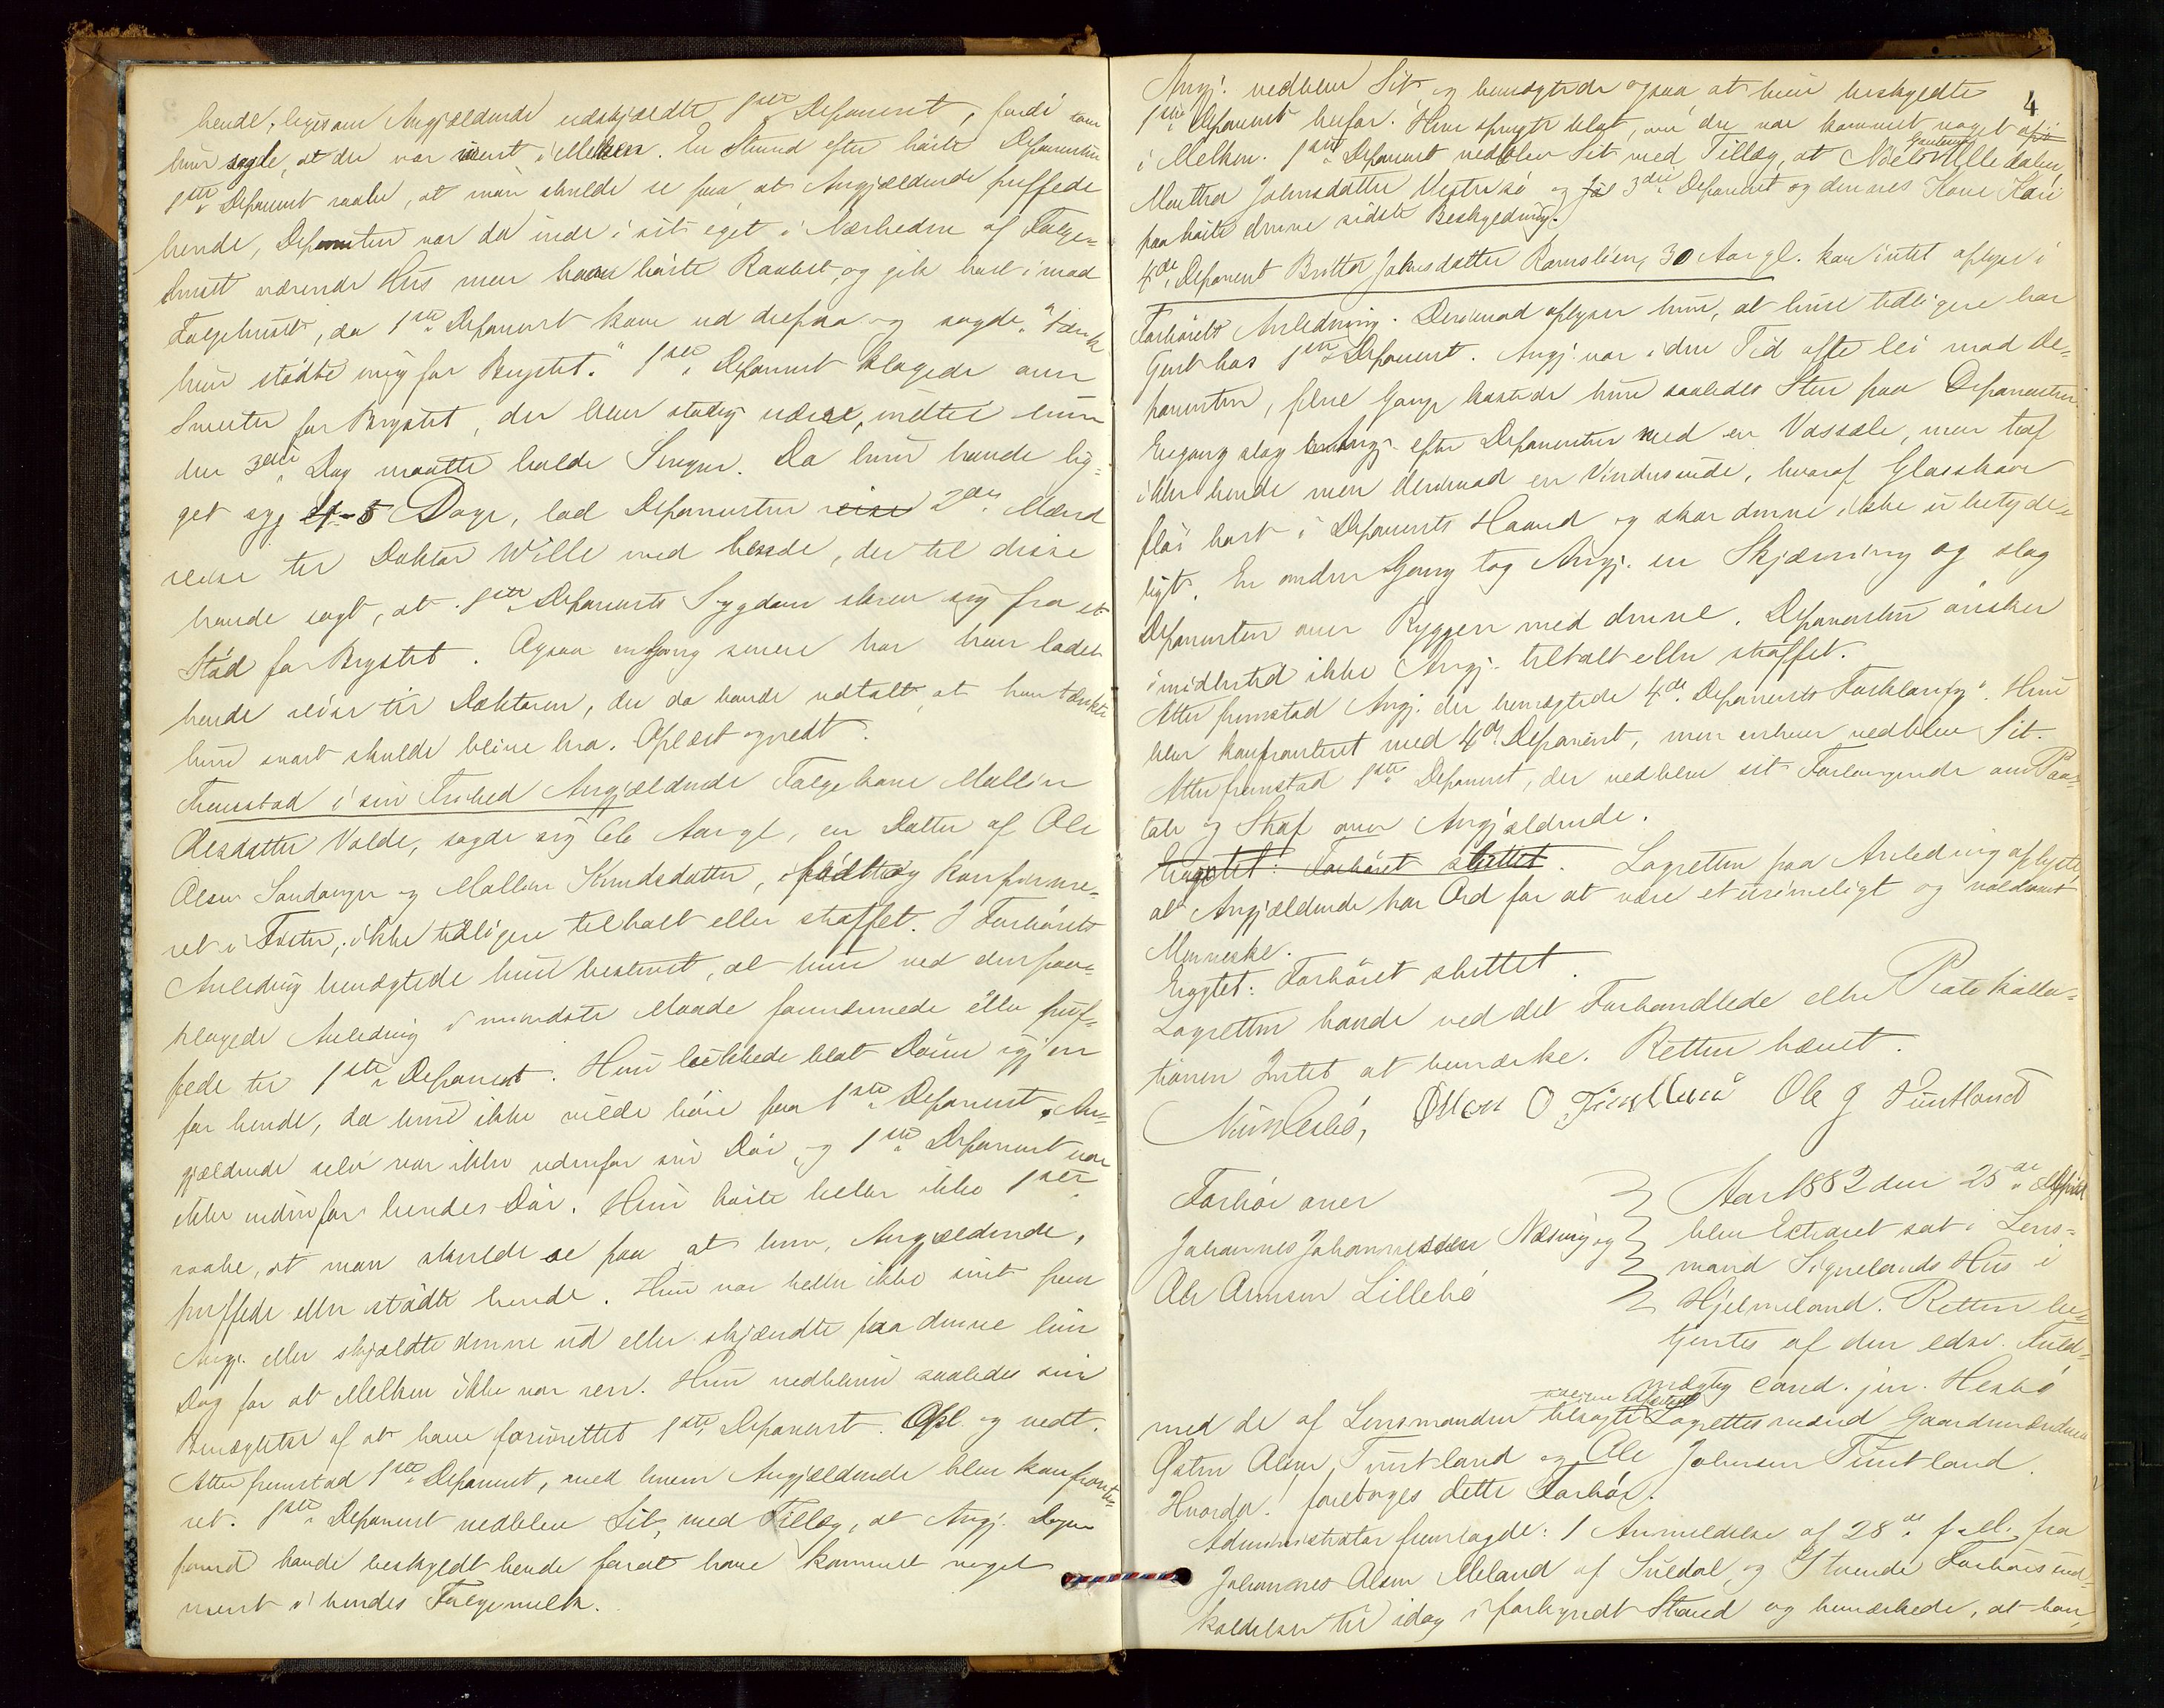 hende, ligesom Angjældende udskjældte 1ste Deponent, fordi som
hun sagde, at der var urent i Melken. En Stund efter hørte Deponenten
1ste Deponent raabe, at man skulde se paa, at Angjældende puffede
hende, Deponenten var da inde i sit eget i Nærheden af Folge-
huset værende Hus men han hørte Raabet, og gik hort imod
Folgehuset, da 1ste Deponent kom ud derfra og sagde: "Tænk
hun stødte mig for Brystet." 1ste Deponent klagede over
Smerter for Brystet, der blev stadig værre, indtil hun
den 3die Dag maatte holde Sengen. Da hun havde lig-
get syg 4-5 Dage, lod Deponenten reise 2de Mænd
reise til Doktor Wille med hende, der til disse
havde sagt, at 1ste Deponents Sygdom skrev sig fra et
Stød for Brystet. Ogsaa engang senere har han ladet
hende reise til Doktoren, der da havde udtalt, at han tænkte
hun snart skulde blive bra. Oplæst og vedt.
Fremstod i sin Frihed Angjældende Folgekone Mallene
Olesdatter Valde, sagde sig 66 Aar gl, en Datter af Ole
Olsen Sandanger og Mallene Knudsdatter, født og konfirme-
ret i Fister, ikke tidligere tiltalt eller straffet. I Forhørets
Anledning benægtede hun bestemt, at hun ved den paa-
klagede Anledning i mindste Maade fornærmede eller puf-
fede til 1ste Deponent. Hun lukkede blot Døren igjen
for hende, da hun ikke vilde høre paa 1ste Deponent. An-
gjældende selv var ikke udenfor sin Dør, og 1ste Deponent var
ikke indenfor hendes Dør. Hun hørte heller ikke 1ste
raabe, at man skulde se paa at hun, Angjældende,
puffede eller stødte hende. Hun var heller ikke sint paa
Angj. eller skjældte denne ud eller skjændte paa denne hin
Dag for at Melken ikke var ren. Hun vedblev saaledes sin
Benægtelse af at have forurettet 1ste Deponent. Opl. og vedt.
Atter fremstod 1ste Deponent, med hvem Angjældende blev konfronte-
ret. 1ste Deponent vedblev Sit, med Tillæg, at Angj. Dagen
forud havde beskyldt hende for at have kommet noget
urent i hendes Folgemelk.
4
Angj. vedblev Sit og benægtede ogsaa at hun beskyldte
1ste Deponent herfor. Hun spurgte blot, om der var kommet noget
i Melken. 1ste Deponent vedblev Sit med Tillæg, at
Martha Johnsdatter og 3die Deponent og dennes Kone Kari
paahørte denne sidste Beskyldning.
4de Deponent Britha Johnsdatter Ramslien, 30 Aar gl. kan intet oplyse i
Forhørets Anledning. Derimod oplyser hun, at hun tidligere har
tjent hos 1ste Deponent. Angj. var i den Tid ofte lei mod De-
ponenten, flere Gange kastede hun saaledes Sten paa Deponenten.
Engang slog Angj. efter Deponenten med en Vassele, men traf
ikke hende men derimod en Vindusrude, hvoraf Glasskaar
fløi bort i Deponents Haand og skar denne ikke ubetyde-
ligt. En anden Gang tog Angj. en Skjæring og slog
Deponenten over Ryggen med denne. Deponenten ønsker
imidlertid ikke Angj. tiltalt eller straffet.
Atter fremstod Angj. der benægtede 4de Deponents Forklaring. Hun
blev konfronteret med 4de Deponent, men enhver vedblev Sit.
Atter fremstod 1ste Deponent, der vedblev sit Forlangende om Paa-
tale og Straf over Angjældende.
Eragtet: Forhøret sluttet. Lagretten paa Anledning oplyste
at Angjældende har Ord for at være et urimeligt og voldsomt
Menneske.
Eragtet: Forhøret sluttet.
Lagretten havde ved det Forhandlede eller Protokolla-
tionen Intet at bemærke. Retten hævet.
Ole J Tuntland
Forhør over
Johannes Johannessen Næsing og
Ole Aanensen Lillebø
Aar 1882 den 25de April
blev Extraret sat i Lens-
mand Signelands Hus i
Hjelmeland. Retten be-
tjentes af den edsv. Fuld-
mægtig cand. jur. Hesbø
med de af Lensmanden tilsagte Lagrettesmænd Gaardmændene
Østen Olsen Tuntland og Ole Johnsen Tuntland.
Hvorda! foretoges dette Forhør.
Administrator fremlagde: 1 Anmeldelse af 28de f. M. fra
Johannes Olsen Meland af Suldal, og 2 tvende Forhørsind-
kaldelser til idag i forkyndt Stand og bemærkede, at han